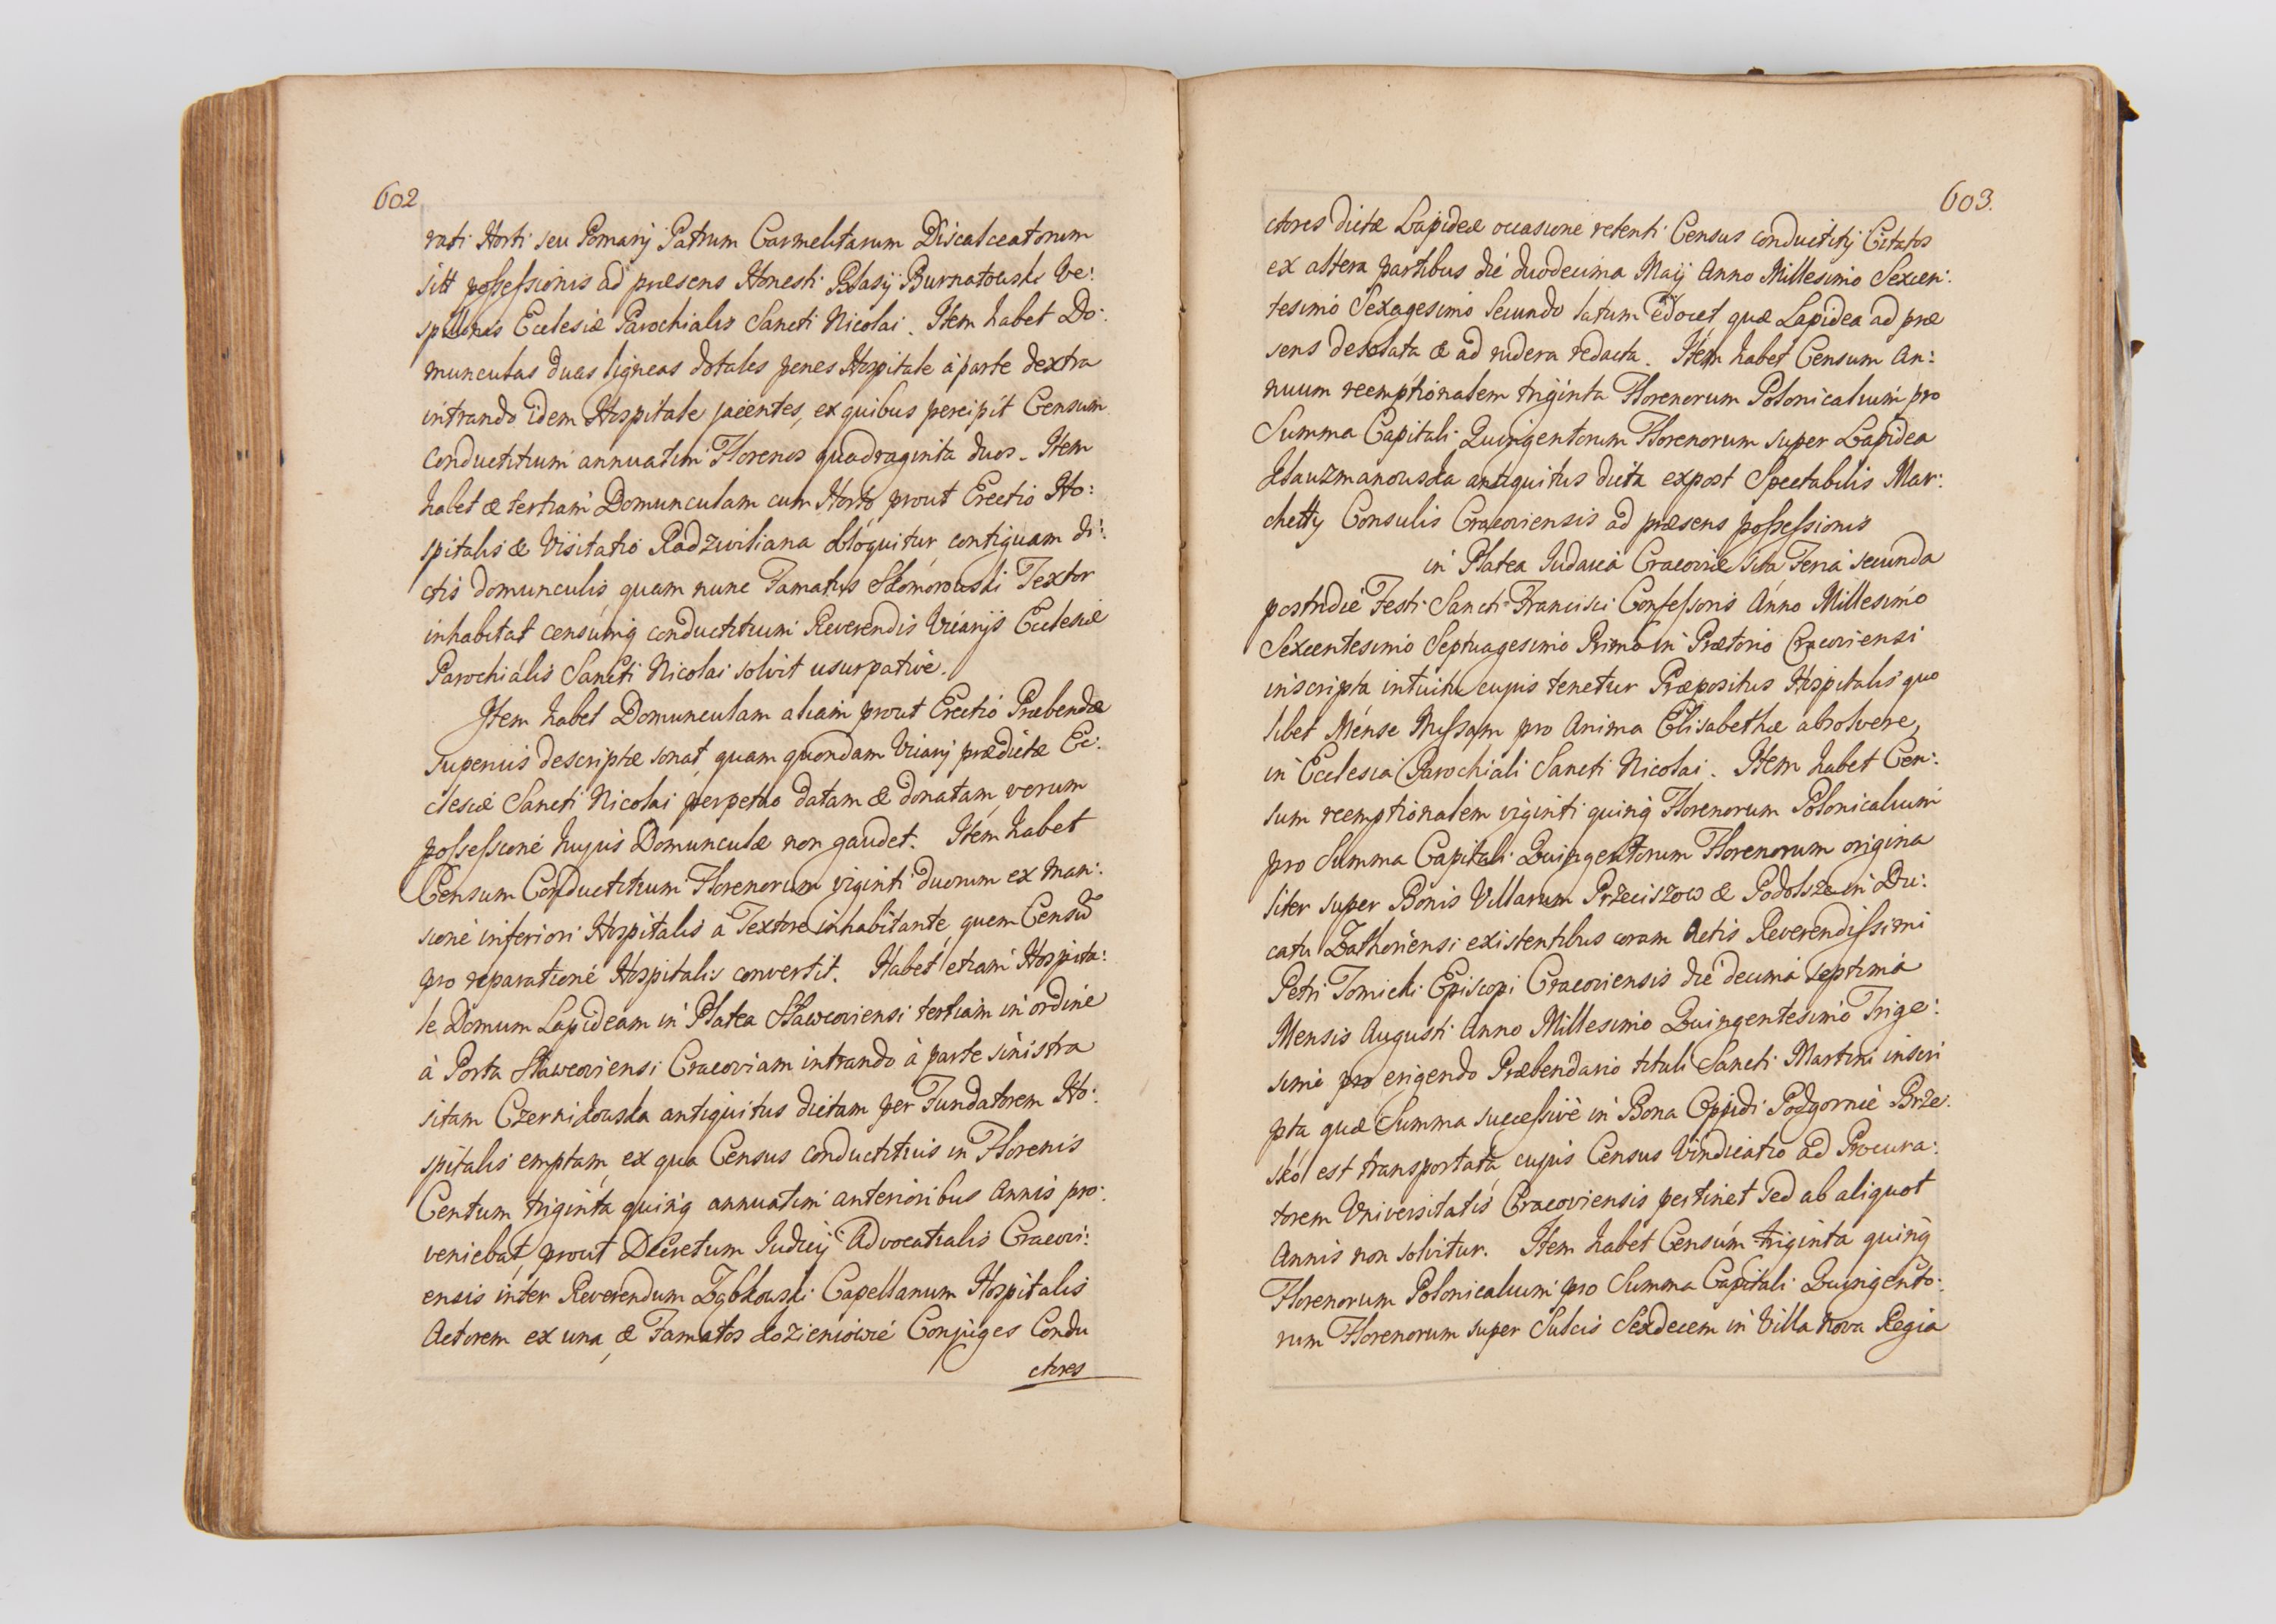 602
rati Horti seu Pomarij Patrum Carmelitarum Discalceatorum
sitt possessionis ad præsens Honesti Blasij Burnatowski Ve:
spillonis Ecclesiæ Parochialis Sancti Nicolai. Item habet Do:
munculas duas ligneas dotales penes Hospitale à parte dextra
intrando idem Hospitale jacentes, ex quibus percipit Censum
conductitium annuatim Florenos quadraginta duos. Item
habet & tertiam Domunculam cum Horto prout Erectio Ho:
spitalis & Visitatio Radziviliana obloquitur contiguam di:
ctis domunculis, quam nunc Famatus Skomorowski Textor
inhabitat censumq conductitium Reverendis Vicarijs Ecclesiæ
Parochialis Sancti Nicolai solvit usurpativè.
Item habet Domunculam aliam prout Erectio Præbendæ
superius descriptæ sonat, quam quondam Vicarij prædictæ Ec:
clesiæ Sancti Nicolai perpetuo datam & donatam, verum
possessione hujus Domunculæ non gaudet. Item habet
Censum Conductitium Florenorum viginti duorum ex man:
sione inferiori Hospitalis à Textore inhabitante, quem Censũ
pro reparatione Hospitalis convertit. Habet etiam Hospita:
le Domum Lapideam in Platea Slawcoviensi tertiam in ordine
à Porta Slawcoviensi Cracoviam intrando à parte sinistra
sitam Czernikowska antiquitus dictam per Fundatorem Ho:
spitalis emptam, ex qua Census conductitius in Florenis
Centum triginta quinq annuatim anterioribus Annis pro:
veniebat, prout Decretum Judicij Advocatialis Cracovi:
ensis inter Reverendum Ząbkowski Capellanum Hospitalis
Actorem ex una, & Famatos Łozieniowie Conjuges Condu
ctores
603.
ctores dictæ Lapideæ occasione retenti Census conductitij Citatos
ex altera partibus die duodecima Maij Anno Millesimo Sexcen:
tesimo Sexagesimo Secundo latum edocet, quæ Lapidea ad præ
sens desolata & ad rudera redacta. Item habet Censum An:
nuum reemptionalem triginta Florenorum Polonicalium pro
Summa Capitali Quingentorum Florenorum super Lapidea
Klauzmanowska antiquitus dicta expost Spectabilis Mar:
chetty Consulis Cracoviensis ad præsens possessionis
in Platea Judaica Cracoviæ sita Feria secunda
postridie Festi Sancti Francisci Confessoris Anno Millesimo
Sexcentesimo Septuagesimo Primo in Prætorio Cracoviensi
inscripta, intuitu cujus tenetur Præpositus Hospitalis quo
libet Mense Missam pro Anima Elisabethæ absolvere,
in Ecclesia Parochiali Sancti Nicolai. Item habet Cen:
sum reemptionalem viginti quinq Florenorum Polonicalium
pro Summa Capitali Quingentorum Florenorum origina
liter super Bonis Villarum Przeciszow & Podolsze in Du:
catu Zathoriensi existentibus coram Actis Reverendissimi
Petri Tomicki Episcopi Cracoviensis die decima septima
Mensis Augusti Anno Millesimo Quingentesimo Trige:
simo pro erigendo Præbendario tituli Sancti Martini inscri
pta quæ Summa successivè in Bona Oppidi Podgornie Brze:
sko est transportata, cujus Census Vindicatio ad Procura:
torem Universitatis Cracoviensis pertinet sed ab aliquot
Annis non solvitur. Item habet Censum triginta quinq
Florenorum Polonicalium pro Summa Capitali Quingento:
rum Florenorum super Sulcis Sexdecem in Villa Nova Regia